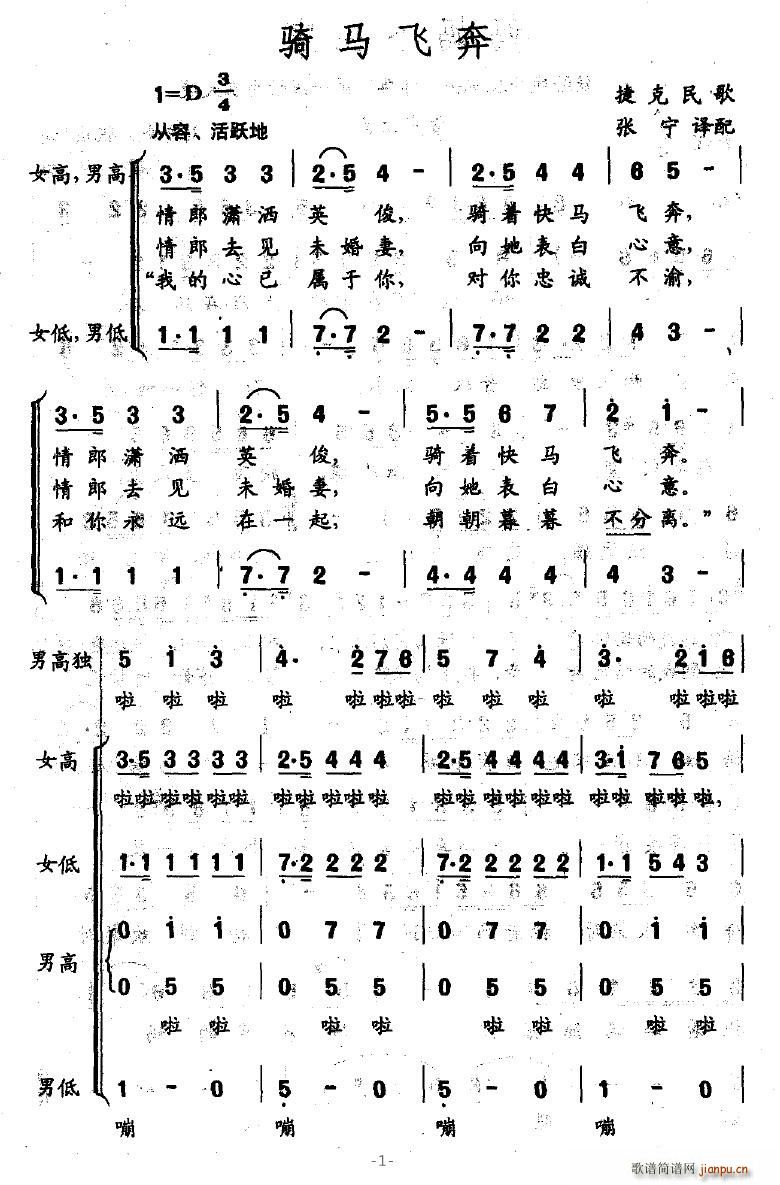 骑马飞奔
1=D 3/4
捷克民歌
从容、活跃地
张宁译配
女高,男高 3·5 3 3 | 2·5 4 - | 2·5 4 4 | 6 5 - |
情郎潇洒 英俊, 骑着快马 飞奔,
情郎去见 未婚妻, 向她表白 心意,
“我的心已 属于你, 对你忠诚 不渝,
女低,男低 1·1 1 1 | 7·7 2 - | 7·7 2 2 | 4 3 - |
3·5 3 3 | 2·5 4 - | 5·5 6 7 | 2 1 - |
情郎潇洒 英俊, 骑着快马 飞奔。
情郎去见 未婚妻, 向她表白 心意。
和你永远 在一起, 朝朝暮暮 不分离。”
1·1 1 1 | 7·7 2 - | 4·4 4 4 | 4 3 - |
男高独 5 1 3 | 4· 2 7 6 | 5 7 4 | 3· 2 1 6 |
啦 啦 啦 啦 啦 啦啦 啦 啦 啦 啦 啦 啦啦
女高 3·5 3 3 3 3 | 2·5 4 4 4 | 2·5 4 4 4 4 | 3·1 7 6 5 |
啦啦啦啦啦啦 啦啦啦啦啦 啦啦啦啦啦啦 啦啦 啦啦啦,
女低 1·1 1 1 1 1 | 7·2 2 2 2 | 7·2 2 2 2 2 | 1·1 5 4 3 |
男高 0 1 1 | 0 7 7 | 0 7 7 | 0 1 1 |
0 5 5 | 0 5 5 | 0 5 5 | 0 5 5 |
啦 啦 啦 啦 啦 啦 啦 啦
男低 1 - 0 | 5 - 0 | 5 - 0 | 1 - 0 |
嘣 嘣 嘣 嘣
-1-
歌谱简谱网 jianpu.cn